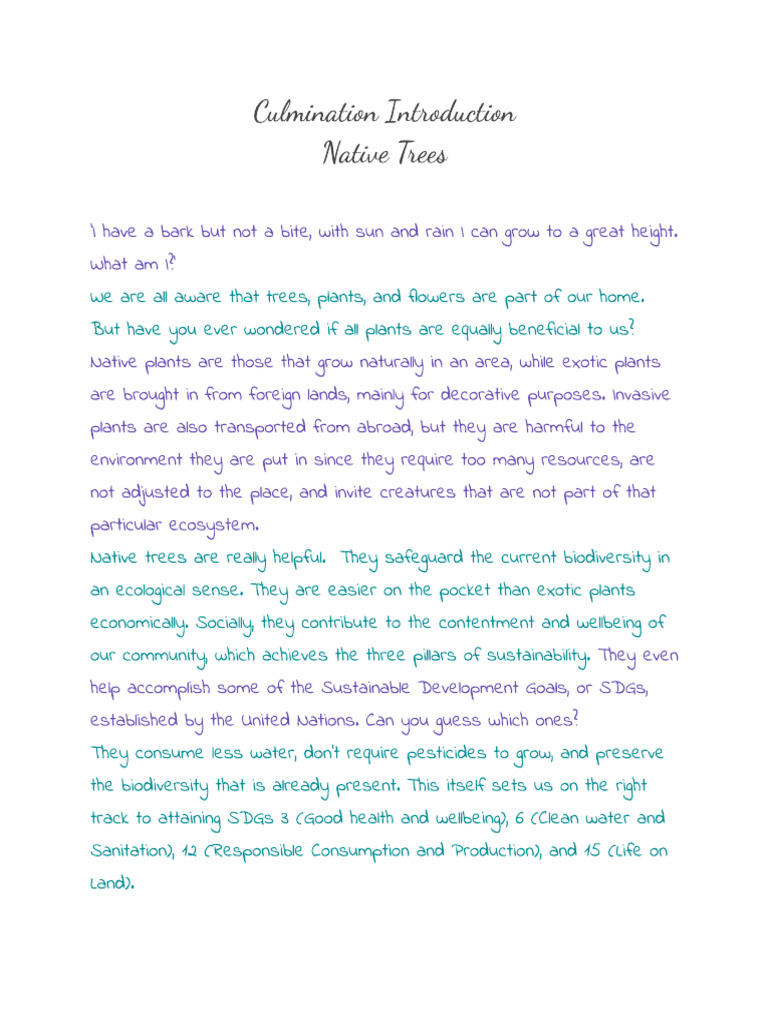 Culmination Introduction
Native Trees
'I have a bark but not a bite, with sun and rain I can grow to a great height.
What am I?'
We are all aware that trees, plants, and flowers are part of our home.
But have you ever wondered if all plants are equally beneficial to us?
Native plants are those that grow naturally in an area, while exotic plants
are brought in from foreign lands, mainly for decorative purposes. Invasive
plants are also transported from abroad, but they are harmful to the
environment they are put in since they require too many resources, are
not adjusted to the place, and invite creatures that are not part of that
particular ecosystem.
Native trees are really helpful.  They safeguard the current biodiversity in
an ecological sense. They are easier on the pocket than exotic plants
economically. Socially, they contribute to the contentment and wellbeing of
our community, which achieves the three pillars of sustainability. They even
help accomplish some of the Sustainable Development Goals, or SDGs,
established by the United Nations. Can you guess which ones?
They consume less water, don't require pesticides to grow, and preserve
the biodiversity that is already present. This itself sets us on the right
track to attaining SDGs 3 (Good health and wellbeing), 6 (Clean water and
Sanitation), 12 (Responsible Consumption and Production), and 15 (Life on
Land).